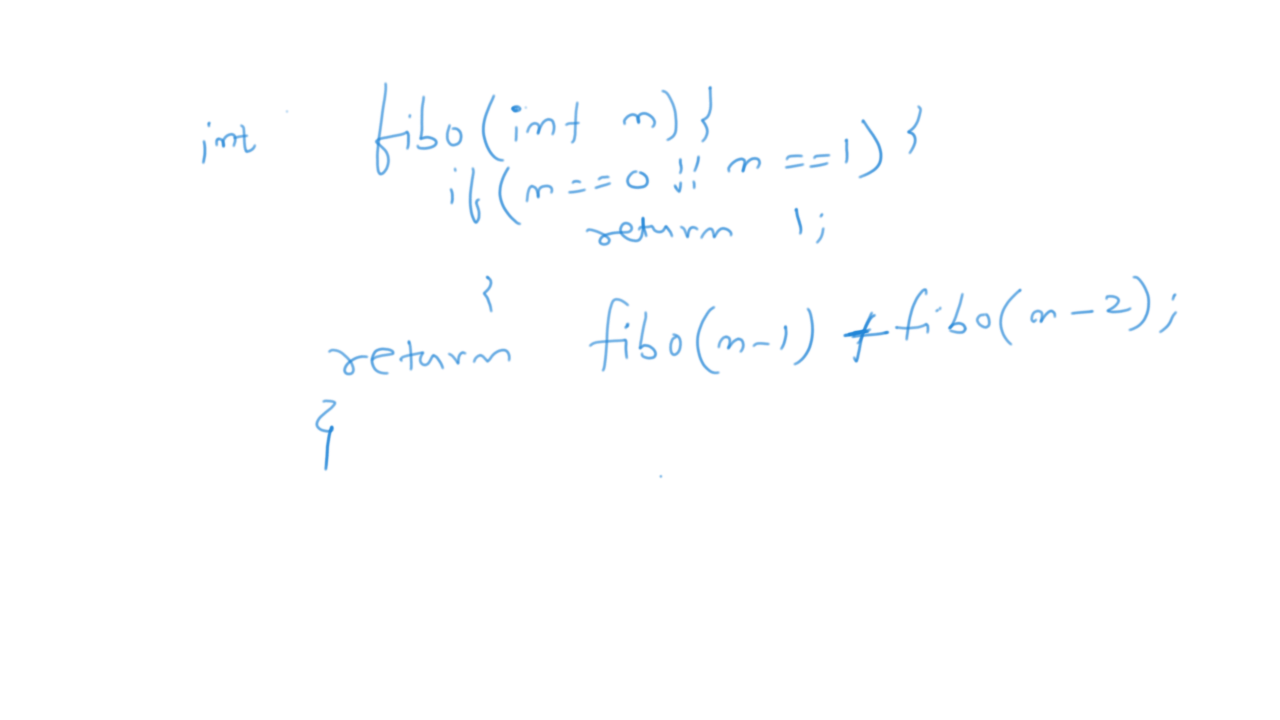 int fibo(int n){
if(n==0 || n==1){
return 1;
}
return fibo(n-1) + fibo(n-2);
}